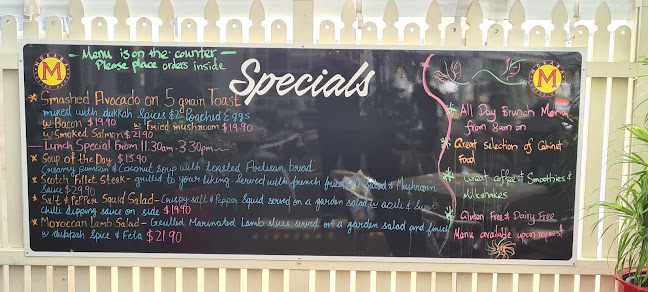 — Menu is on the counter —
Please place orders inside
Specials
M
M
* Smashed Avocado on 5 grain Toast
mixed with dukkah spices & 2 Poached Eggs
w Bacon $19.90 w Fried mushroom $19.90
w Smoked Salmon $21.90
— Lunch Special From 11.30am - 3.30pm —
* Soup of the Day $15.90
Creamy Pumpkin & Coconut soup with toasted Artisan bread
* Scotch Fillet steak - grilled to your liking. Served with french fries, Salad & Mushroom
Sauce $29.90
* Salt & Pepper Squid Salad - Crispy salt & Pepper Squid served on a garden salad w aioli & Sweet
Chilli dipping sauce on side $19.90
* Moroccan Lamb Salad - Grilled Marinated Lamb slices served on a garden salad and finish
w dukkah Spice & Feta $21.90
* All Day Brunch Menu
from 8am on
* Great selection of Cabinet
Food
* Great coffee & Smoothies &
Milkshakes
* Gluten Free & Dairy Free
Menu available upon request